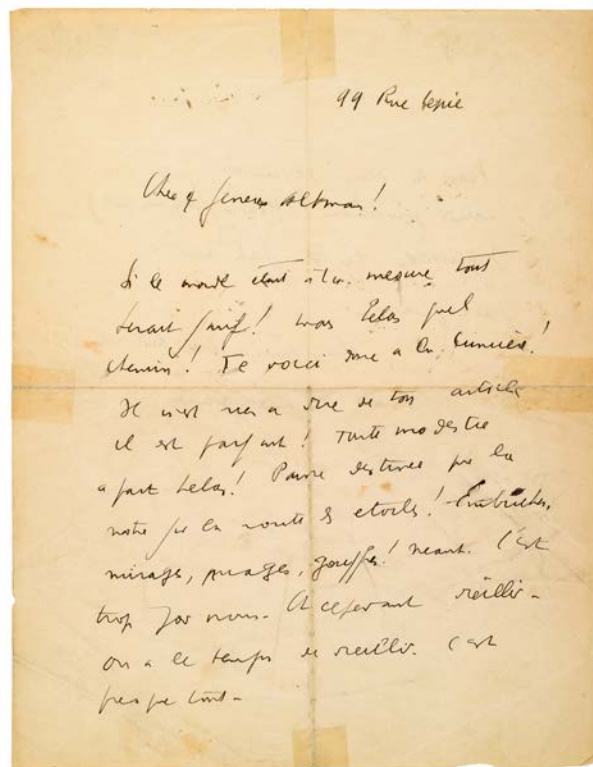 99 Rue Lepic
Cher & généreux Altman!
Si le monde était à ta mesure tout
serait ! mais hélas quel
chemin! Te voici une à la lumière!
Il n'est rien a dire de ton article
il est parfait! Toute modestie
a part helas! Pauvre destinée que la
notre sur la route des etoiles! Embuches,
mirages, , gouffres! neant. C'est
trop pour nous. Et cependant vieillir -
on a le temps de vieillir. C'est
presque tout -